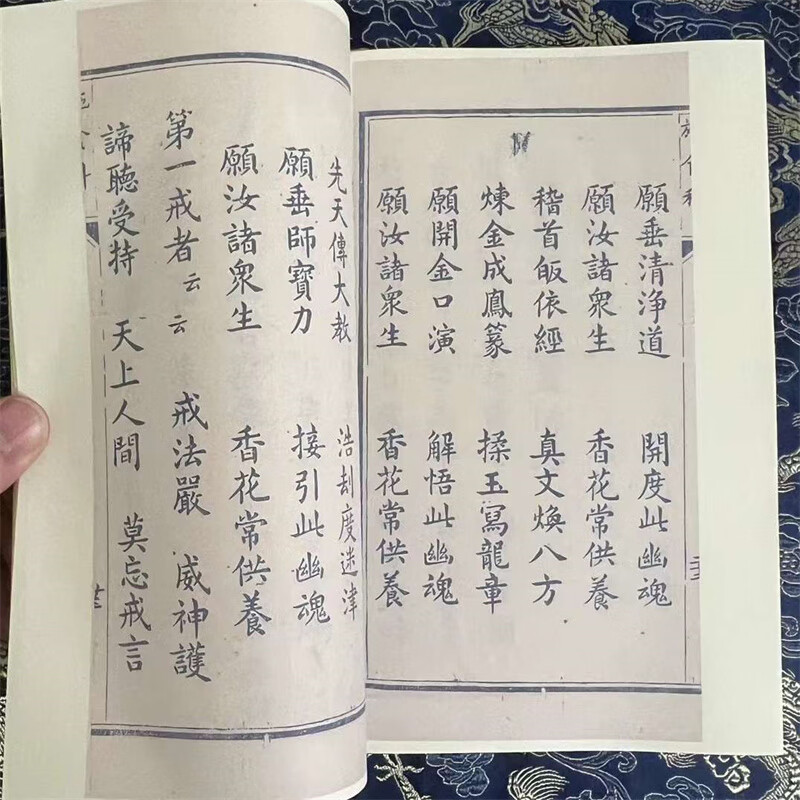 願垂清淨道　開度此幽魂
願汝諸衆生　香花常供養
稽首皈依經　真文煥八方
煉金成鳳篆　揉玉寫龍章
願開金口演　解悟此幽魂
願汝諸衆生　香花常供養
先天傳大教　浩刦度迷津
願垂師寶力　接引此幽魂
願汝諸衆生　香花常供養
第一戒者云云　戒法嚴　威神護
諦聽受持　天上人間　莫忘戒言